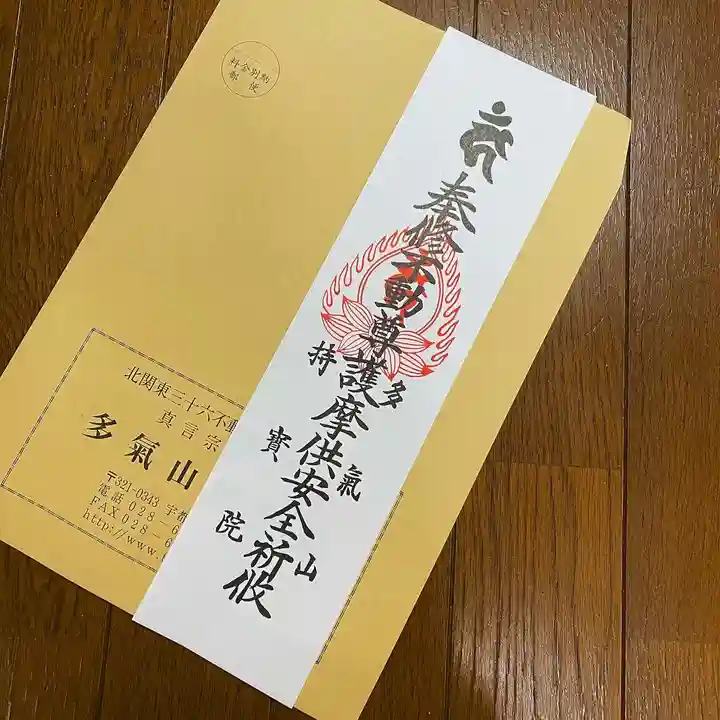 料金別納
郵便
奉修不動尊護摩供安全祈攸
多氣山
持寶院
北関東三十六不動
真言宗
多氣山
〒321-0343 宇都
電話028-6
FAX028-6
http://www.